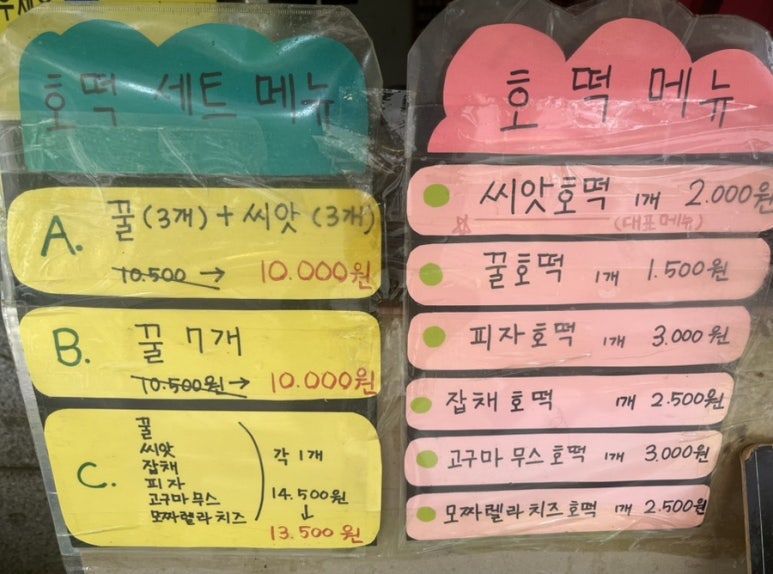 호떡 세트 메뉴
A. 꿀 (3개) + 씨앗 (3개)
10.500 → 10.000원
B. 꿀 7개
10.500원 → 10.000원
C.
꿀
씨앗
잡채
피자
고구마무스
모짜렐라치즈
각 1개
14.500원
↓
13.500원
호떡 메뉴
씨앗호떡 1개 2.000원
(대표메뉴)
꿀호떡 1개 1.500원
피자호떡 1개 3.000원
잡채호떡 1개 2.500원
고구마무스호떡 1개 3.000원
모짜렐라치즈호떡 1개 2.500원